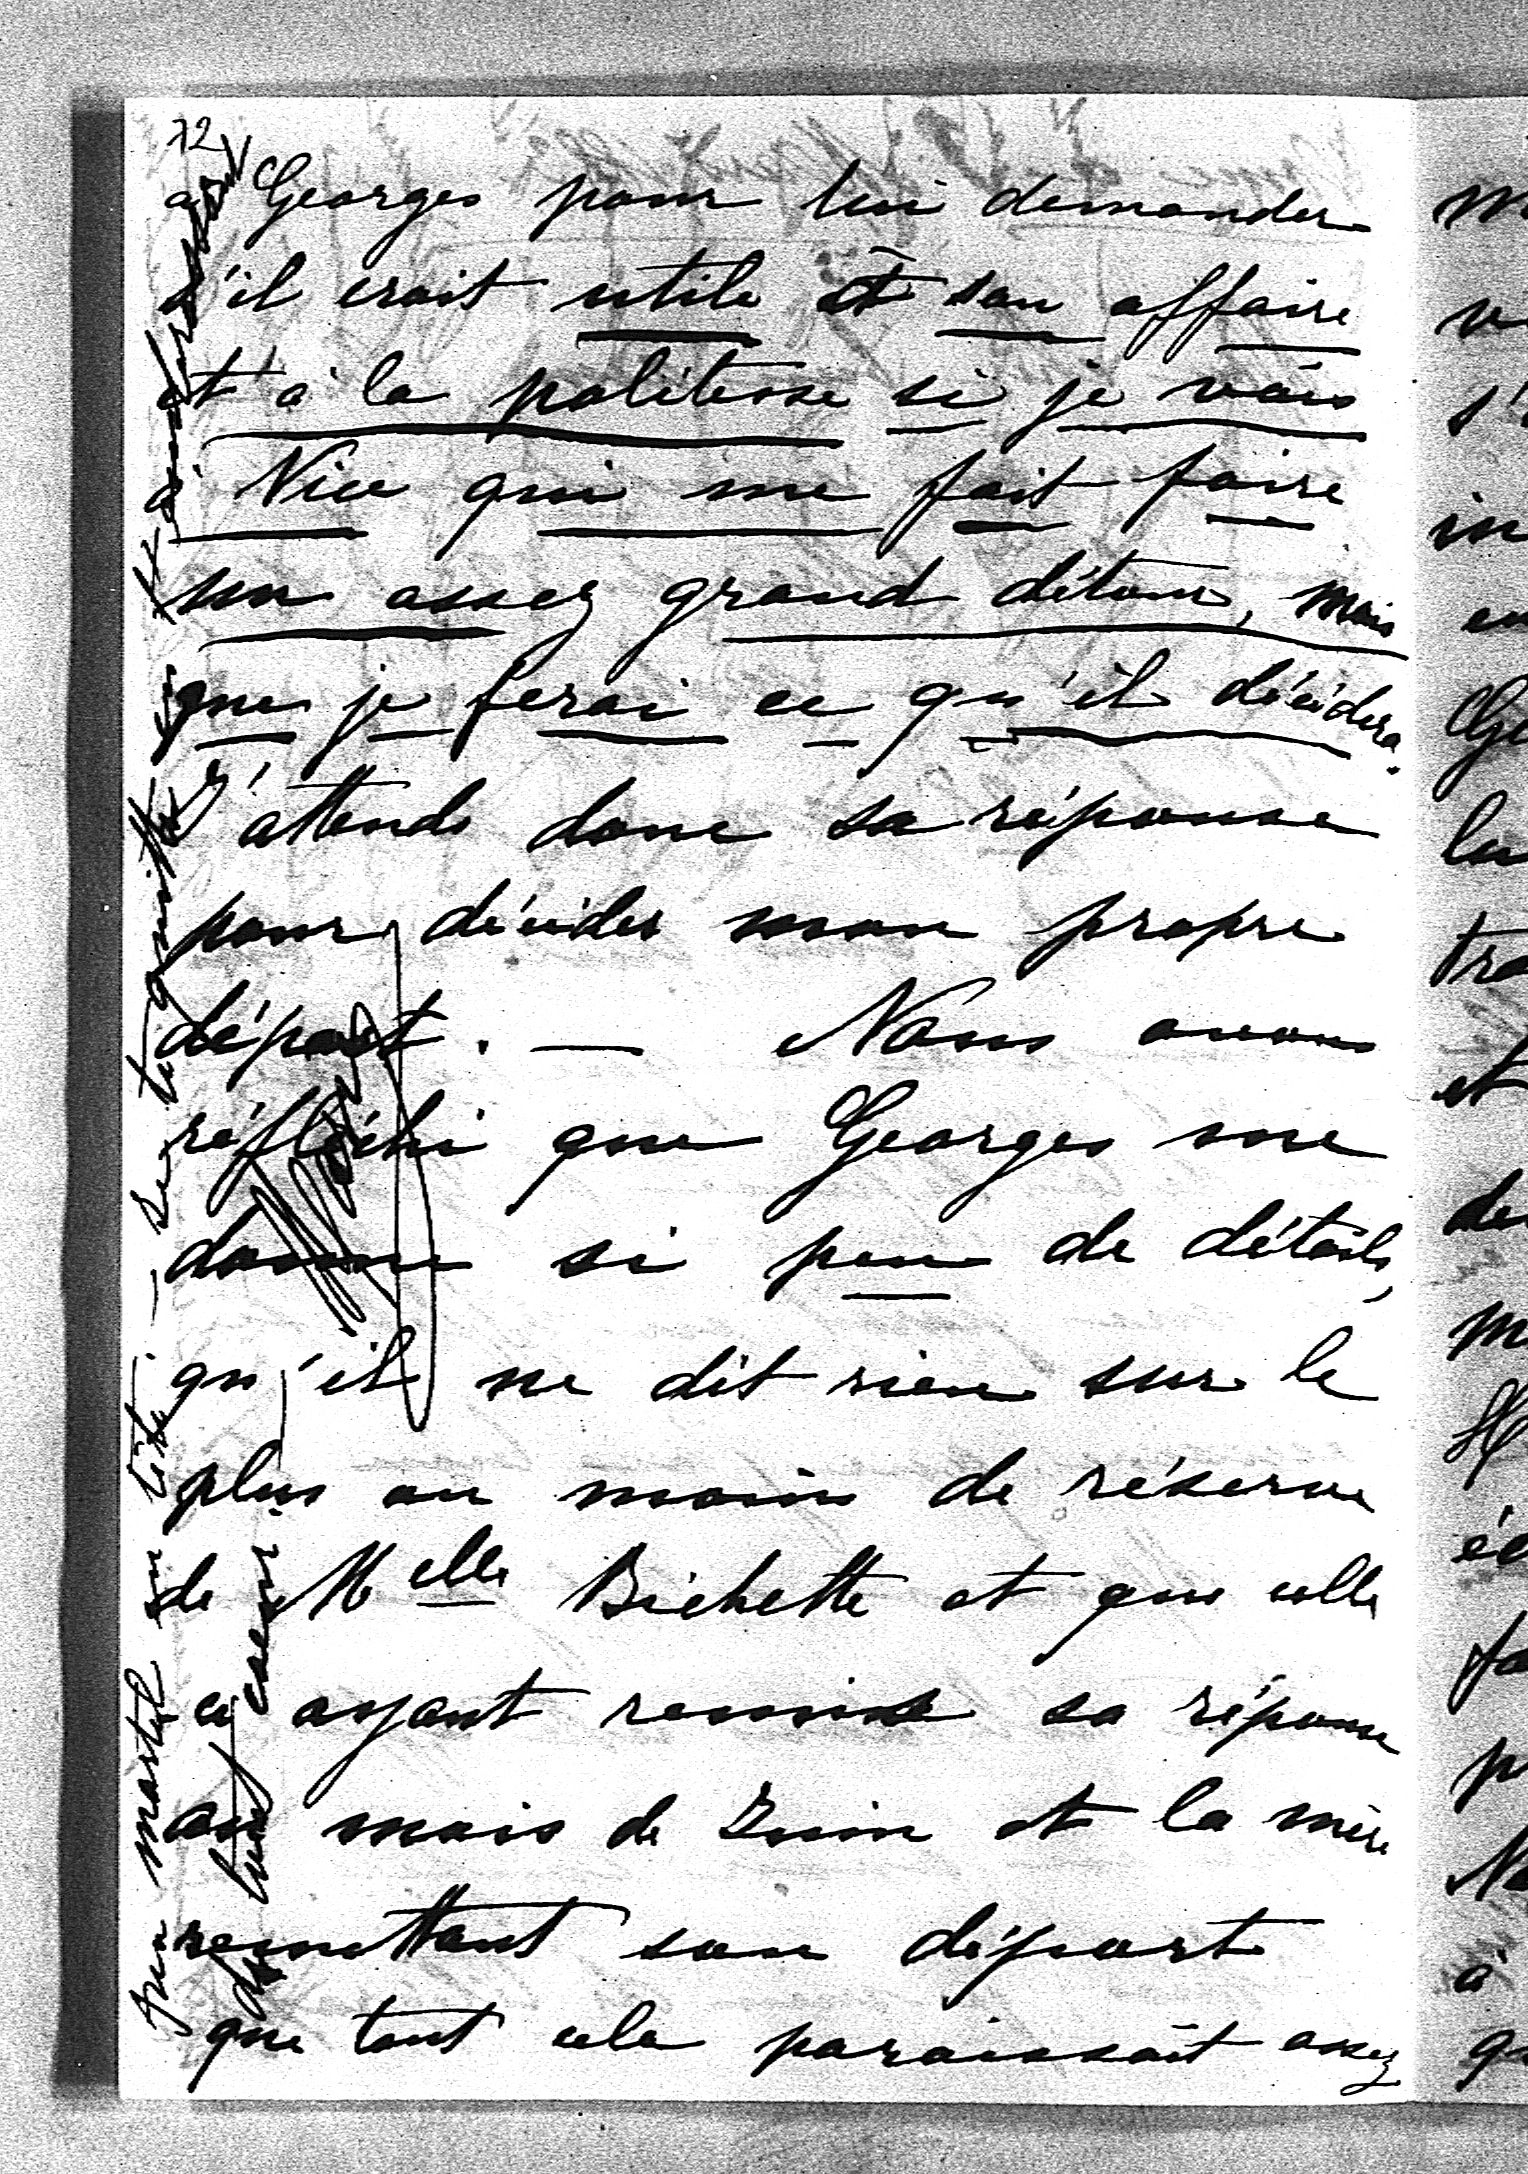 12
à Georges pour lui demander
s'il croit utile à son affaire
et à la politesse si je vais
à Nice qui me fait faire
un assez grand détour, mais
que je ferai ce qu'il décidera.
J'attends donc sa réponse
pour décider mon propre
départ. — Nous avons
réfléchi que Georges me
donne si peu de détails,
qu'il ne dit rien sur le
plus ou moins de réserve
de Melle Bichette et que celle
ci ayant remise sa réponse
au mois de Juin et la mère
remettant son départ
que tout cela paraissait assez
martel en tête. —
de tout coeur.